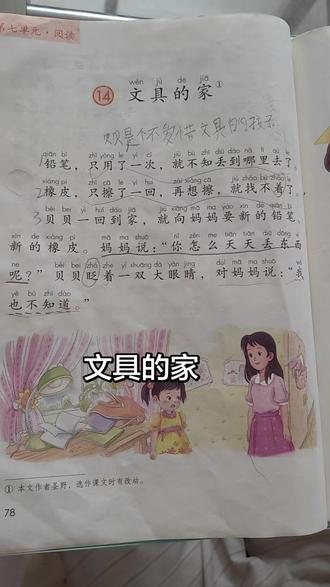 第七单元·阅读
wén jù de jiā
14 文具的家①
贝贝是个不爱惜文具的孩子
qiān bǐ zhǐ yòng le yí cì jiù bù zhī diū dào nǎ lǐ qù le
1铅笔，只用了一次，就不知丢到哪里去了。
xiàng pí zhǐ cā le yì huí zài xiǎng cā jiù zhǎo bù zháo le
2橡皮，只擦了一回，再想擦，就找不着了。
bèi bei yì huí dào jiā jiù xiàng mā ma yào xīn de qiān bǐ
3贝贝一回到家，就向妈妈要新的铅笔、
xīn de xiàng pí mā ma shuō nǐ zěn me tiān tiān diū dōng xi
新的橡皮。妈妈说：“你怎么天天丢东西
ne bèi bei zhǎ zhe yì shuāng dà yǎn jing duì mā ma shuō wǒ
呢？”贝贝眨着一双大眼睛，对妈妈说：“我
yě bù zhī dào
也不知道。”
文具的家
① 本文作者圣野，选作课文时有改动。
78